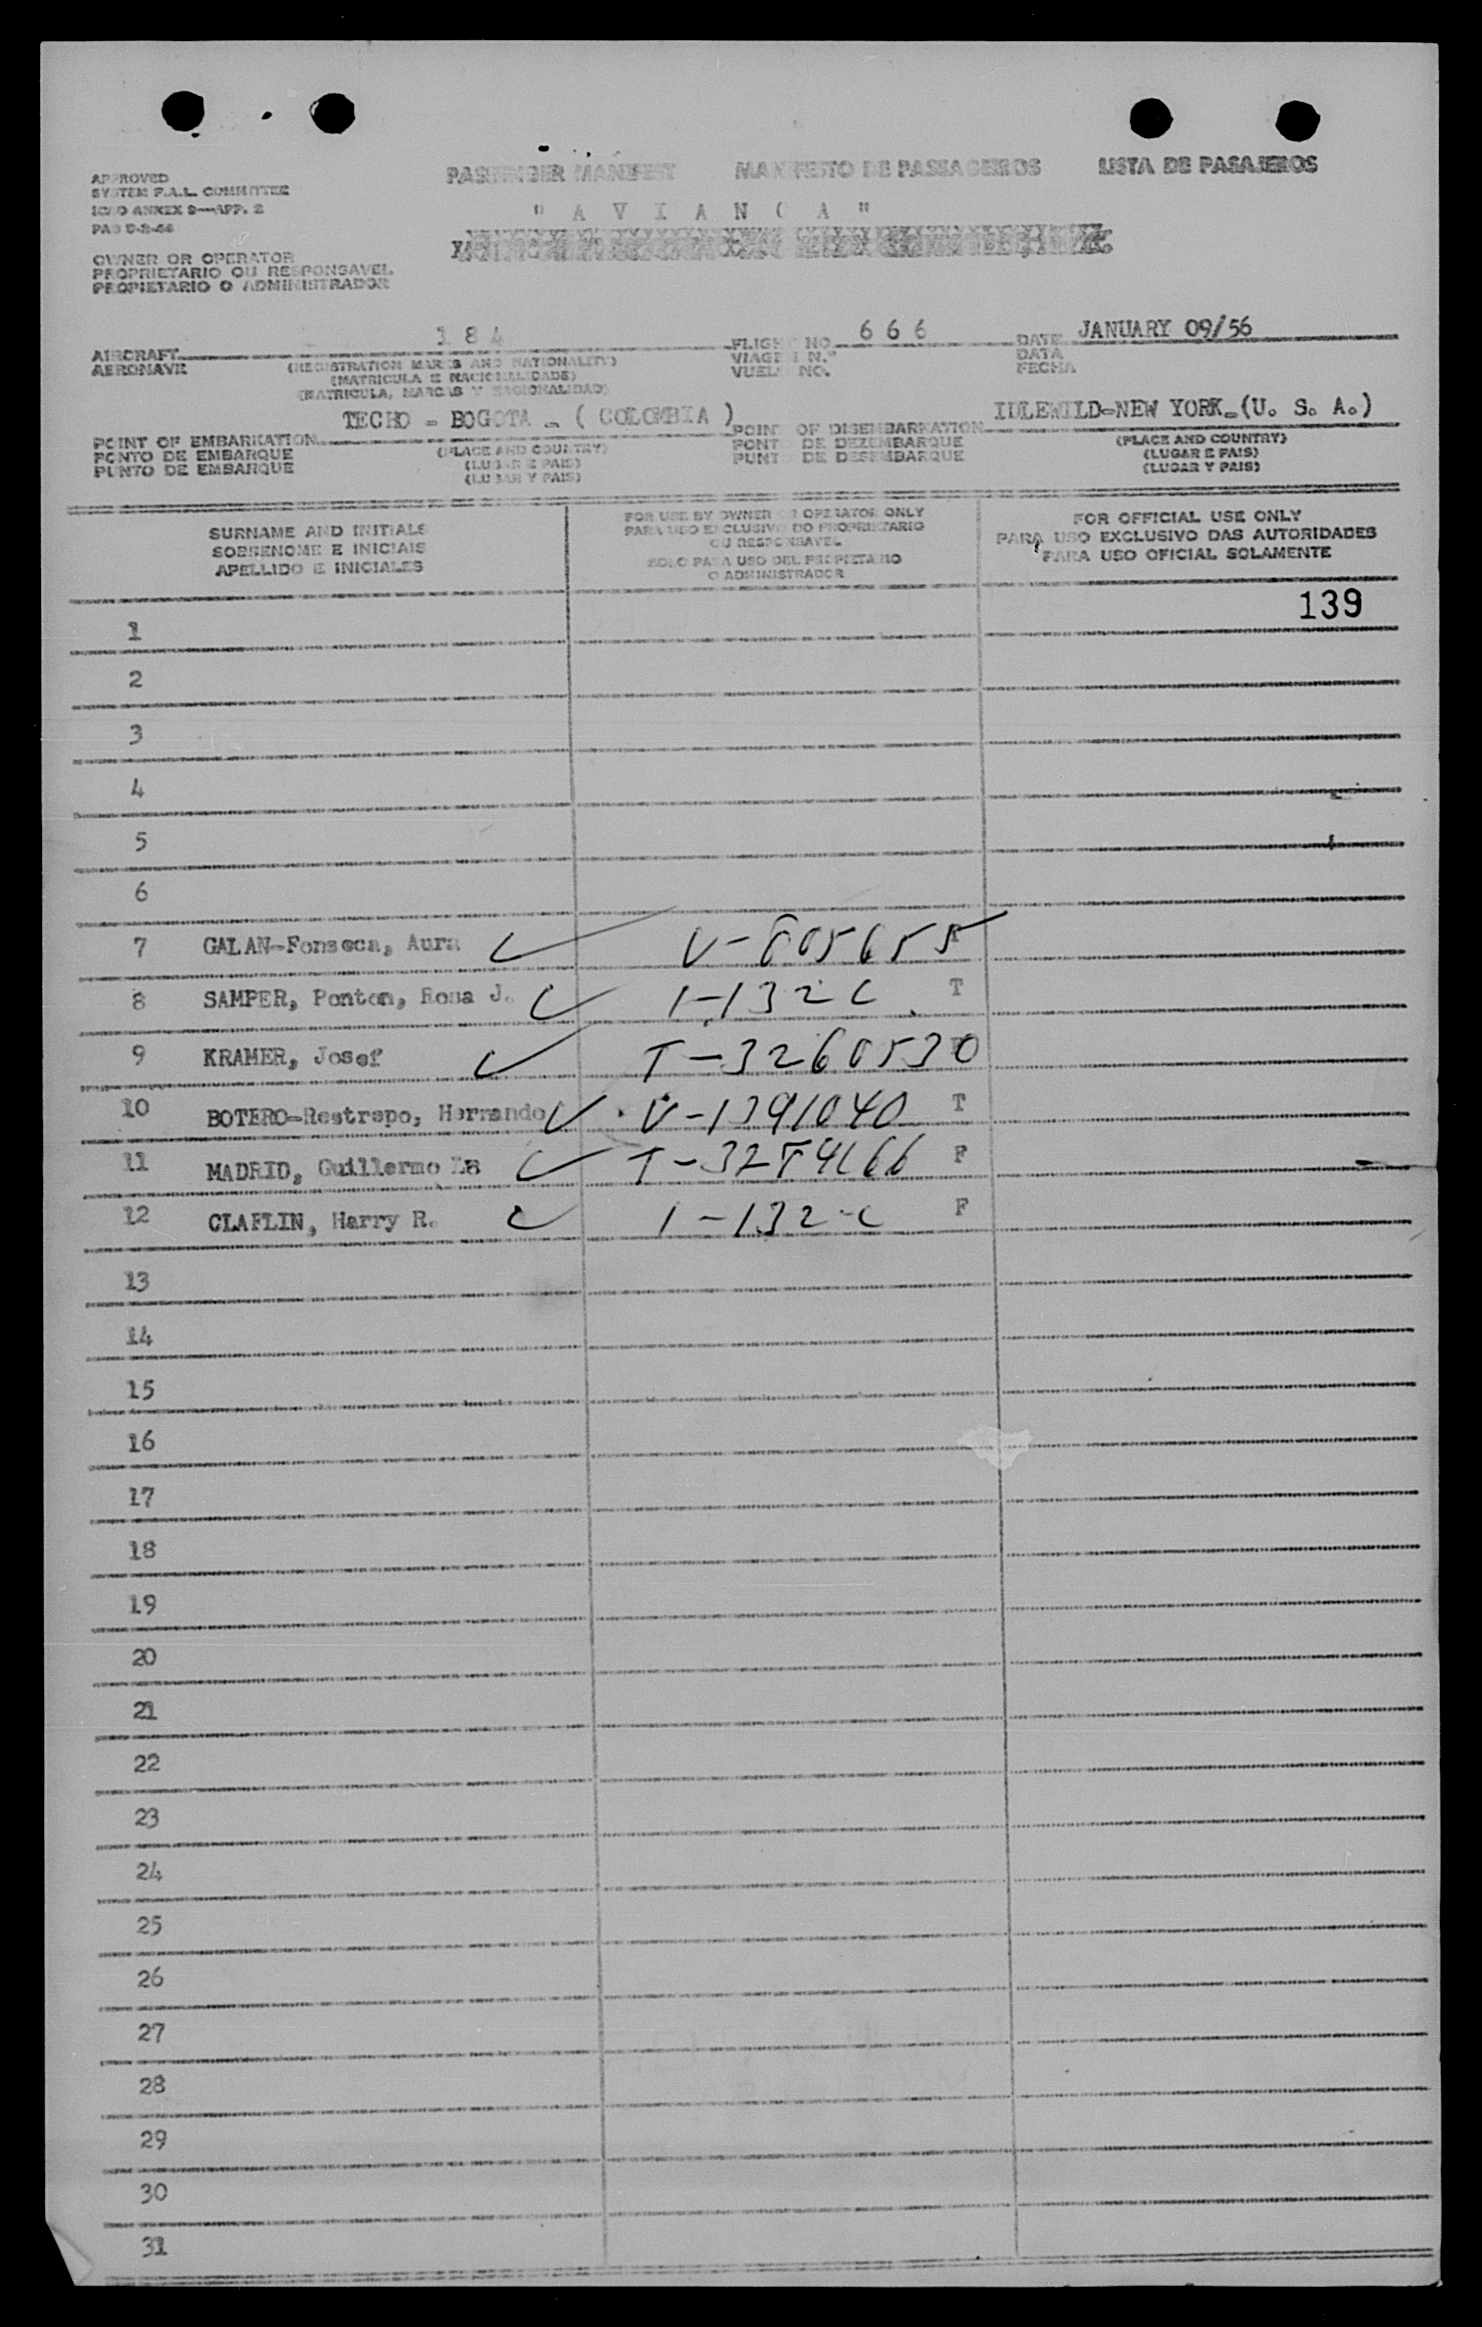 APPROVED
SYSTEM F.A.L. COMMITTEE
ICAO ANNEX 9—APP. 2
PASSENGER MANIFEST MANIFESTO DE PASSAGEIROS LISTA DE PASAJEROS
" A V I A N C A "
OWNER OR OPERATOR
PROPRIETARIO OU RESPONSAVEL
PROPIETARIO O ADMINISTRADOR
AIRCRAFT 184 FLIGHT NO. 666 DATE JANUARY 09/56
AERONAVE (REGISTRATION MARKS AND NATIONALITY) VIAGEM N.º DATA
(MATRICULA E NACIONALIDADE) VUELO NO. FECHA
(MATRICULA, MARCAS Y NACIONALIDAD)
POINT OF EMBARKATION TECHO - BOGOTA - ( COLOMBIA ) POINT OF DISEMBARKATION IDLEWILD-NEW YORK-(U. S. A.)
PONTO DE EMBARQUE (PLACE AND COUNTRY) PONTO DE DEZEMBARQUE (PLACE AND COUNTRY)
PUNTO DE EMBARQUE (LUGAR E PAIS) PUNTO DE DESEMBARQUE (LUGAR E PAIS)
(LUGAR Y PAIS) (LUGAR Y PAIS)
SURNAME AND INITIALS FOR USE BY OWNER OR OPERATOR ONLY FOR OFFICIAL USE ONLY
SOBRENOME E INICIAIS PARA USO EXCLUSIVO DO PROPRIETARIO PARA USO EXCLUSIVO DAS AUTORIDADES
OU RESPONSAVEL
APELLIDO E INICIALES SOLO PARA USO DEL PROPIETARIO PARA USO OFICIAL SOLAMENTE
O ADMINISTRADOR
139
1
2
3
4
5
6
7 GALAN-Fonseca, Aura
8 SAMPER, Ponton, Rosa J. T
9 KRAMER, Josef T-3260530
10 BOTERO-Restrepo, Hernando V-1391040 T
11 MADRID, Guillermo F
12 CLAFLIN, Harry R. F
13
14
15
16
17
18
19
20
21
22
23
24
25
26
27
28
29
30
31